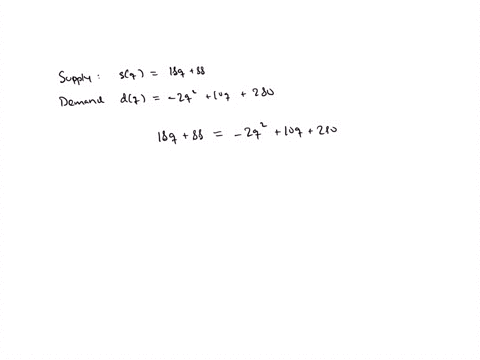 Supply: s(q) = 18q + 88
Demand d(q) = -2q² + 10q + 280
18q + 88 = -2q² + 10q + 280